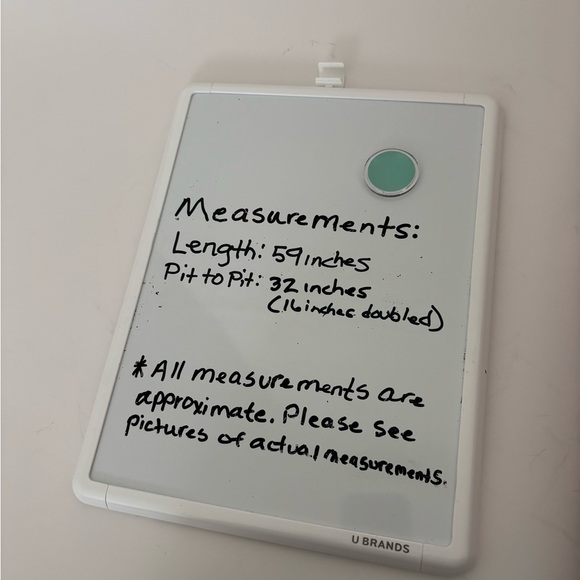 Measurements:
Length: 59 inches
Pit to Pit: 32 inches
(16 inches doubled)
* All measurements are
approximate. Please see
pictures of actual measurements.
U BRANDS